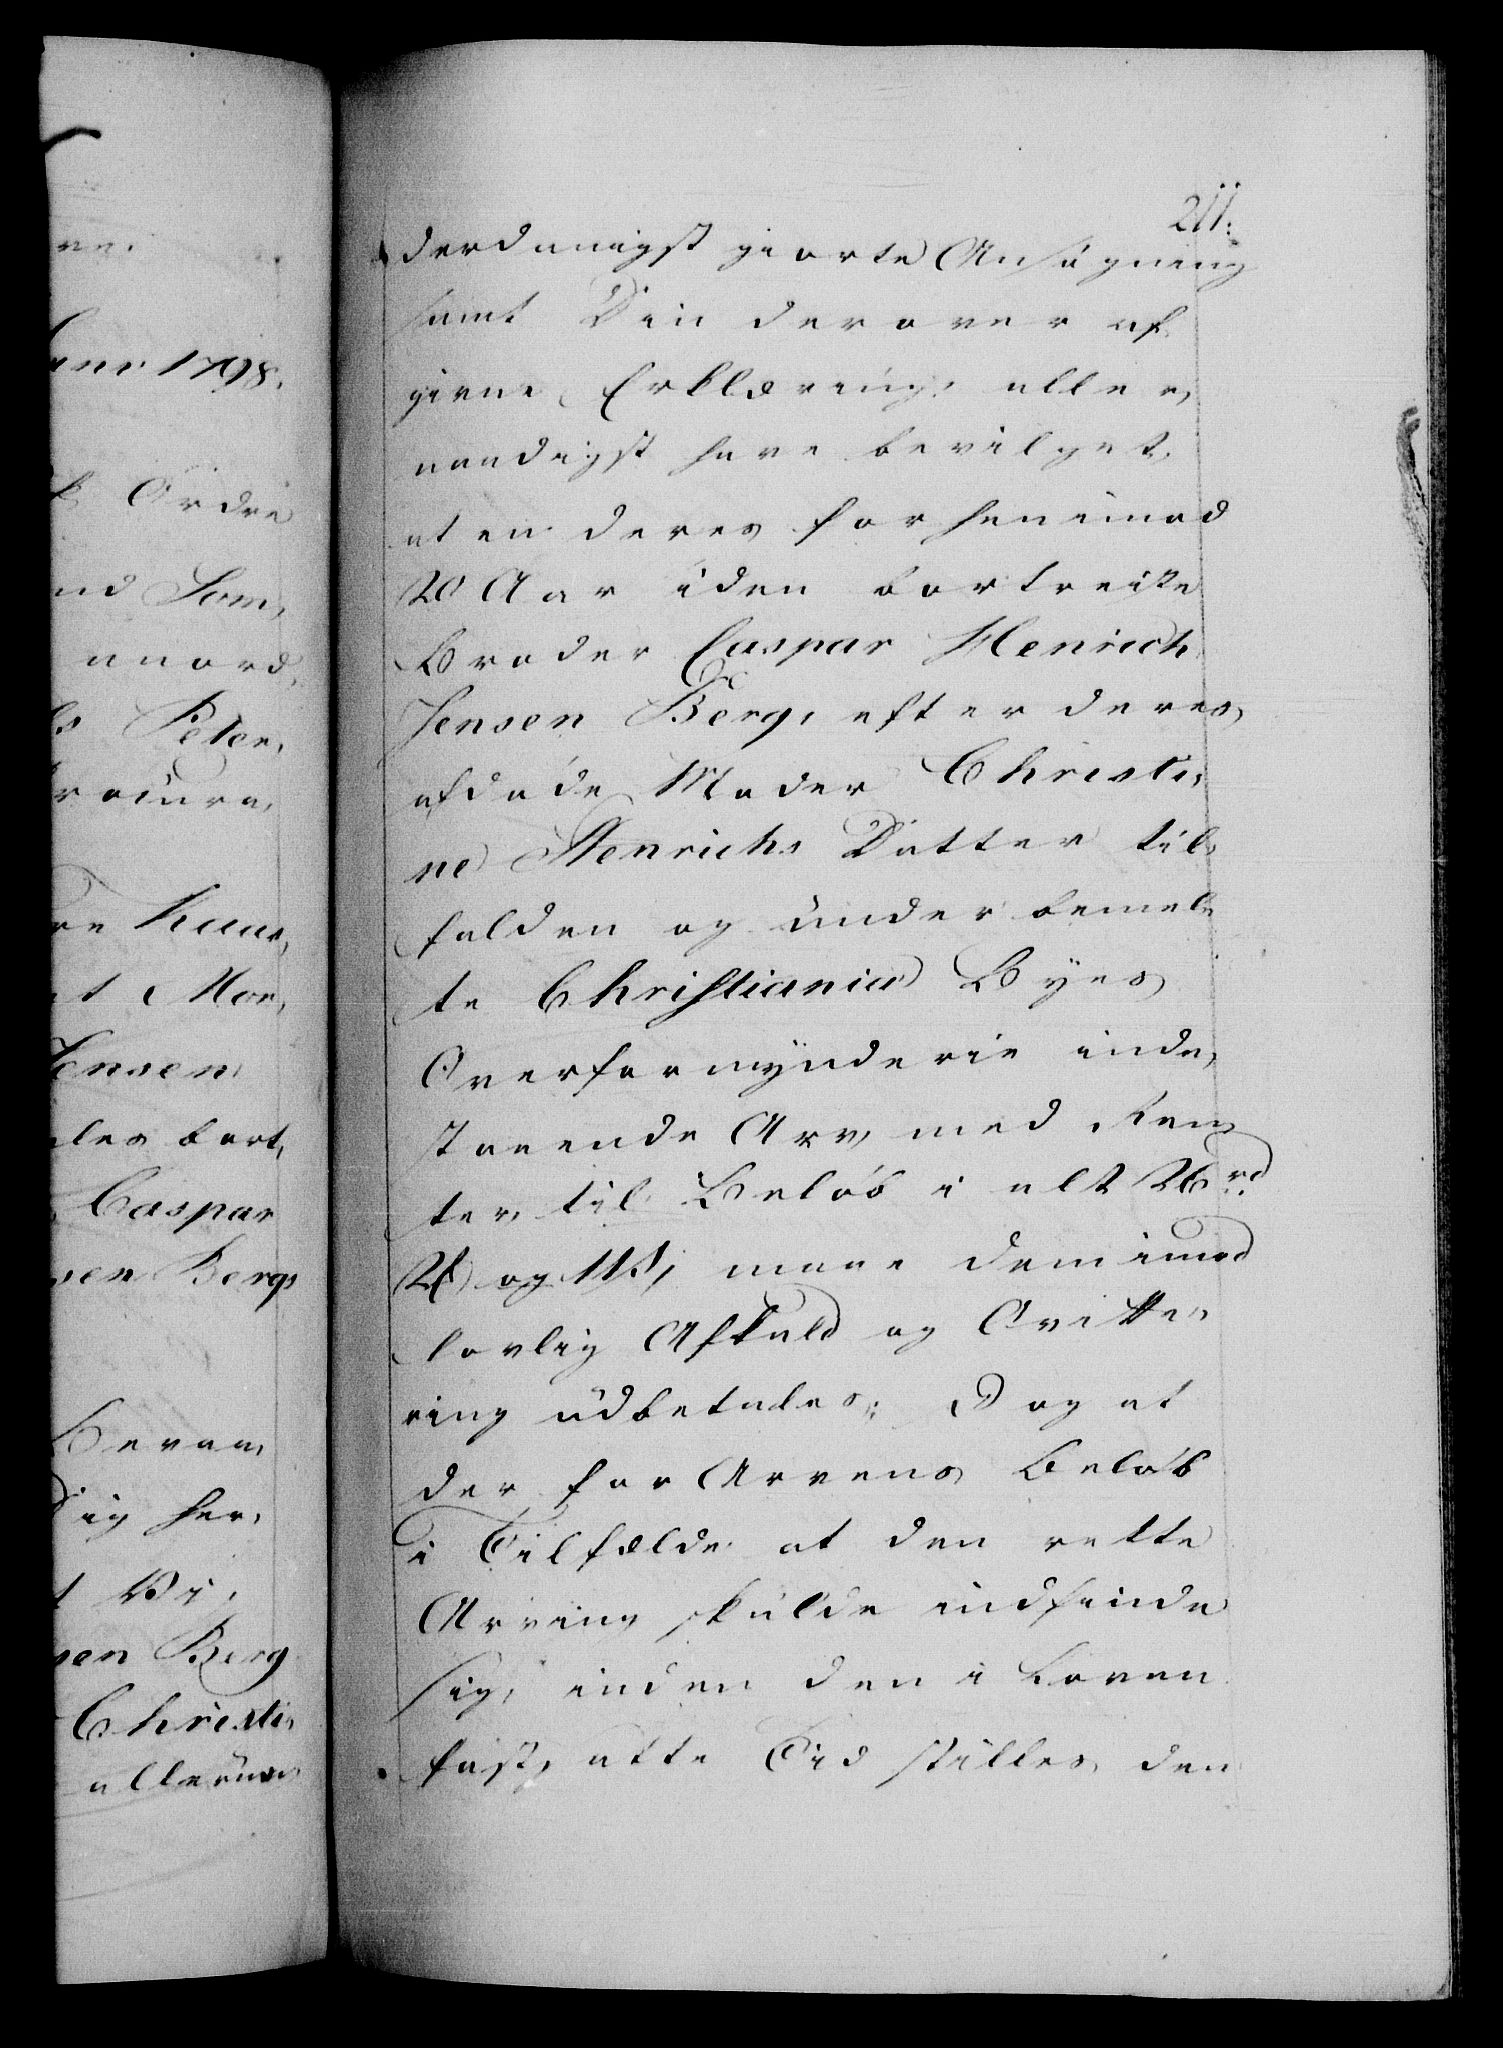 211.
derdanigst giorte Ansøgning
samt Din derover af¬
givne Erklæring, aller,
naadigst have bevilget,
at en deres for henimod
20 Aar siden bortreiste
Broder Caspar Henrich
Jensen Berg, efter deres
afdøde Moder Christi,
ne Henrichs Datter til,
falden og under bemel,
te Christiania Byes
Overformynderie inde,
staaende Arv, med Ren,
ter, til Beløb i alt 26 rd
2 og 11 s, maae dem imod
lovlig Afkald og Qvitte,
ring udbetales; Dog at
der for Arvens Beløb
i Tilfælde at den rette
Arving skulde indfinde
sig, inden den i Loven
fast, satte Tid stilles den
ve.
anr 1798.
Ordre
nd Som,
anord,
Peter,
rocura,
re
t Mor,
Jensen
les bort,
Caspar
sen Berg,
Bevaa,
Dig her,
t Vi,
sen Berg
Christi,
allerun,